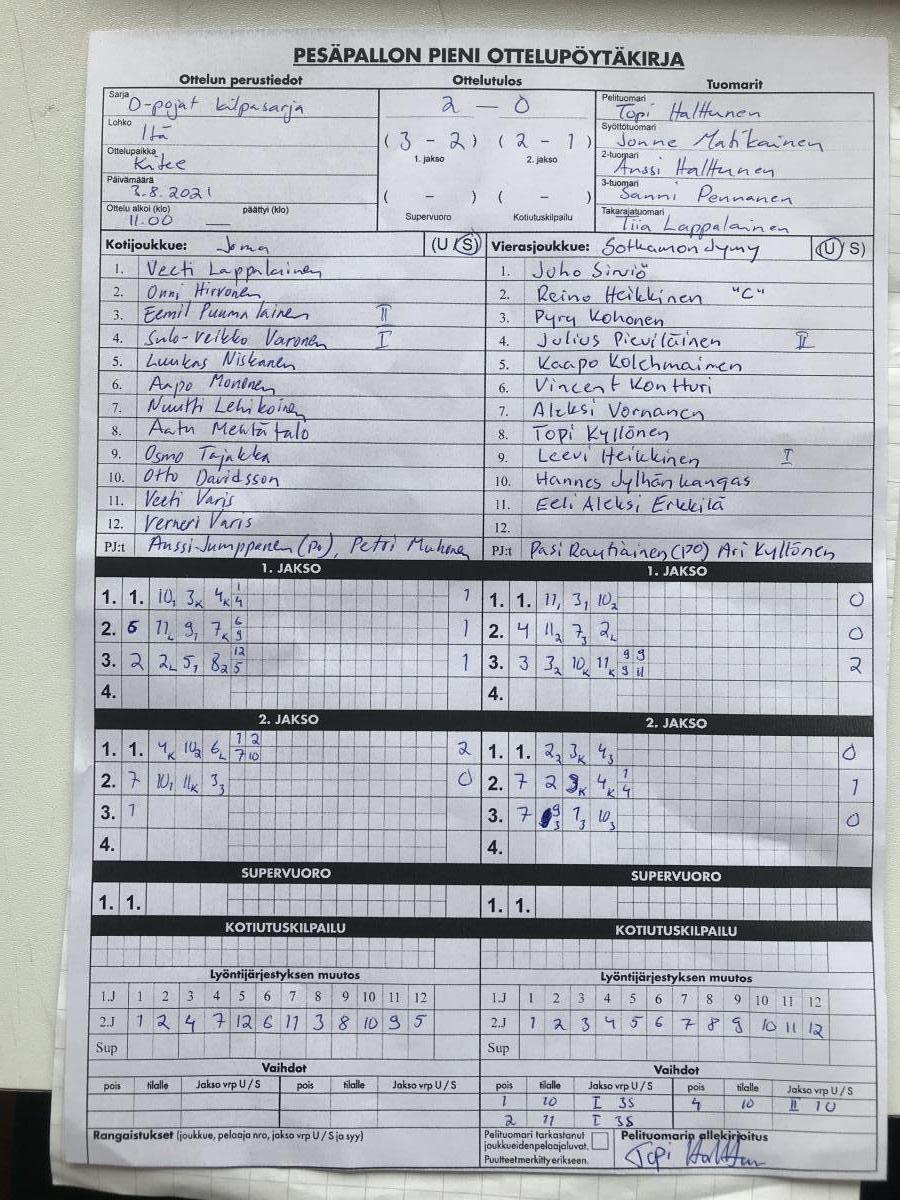 PESÄPALLON PIENI OTTELUPÖYTÄKIRJA
Ottelun perustiedot
Sarja
D-pojat kilpasarja
Lohko
Itä
Ottelupaikka
Kitee
Päivämäärä
3.8.2021
Ottelu alkoi (klo) päättyi (klo)
11.00 —
Ottelutulos
2 – 0
( 3 – 2 ) ( 2 – 1 )
1. jakso 2. jakso
( – ) ( – )
Supervuoro Kotiutuskilpailu
Tuomarit
Pelituomari
Topi Halttunen
Syöttötuomari
Jonne Matikainen
2-tuomari
Anssi Halttunen
3-tuomari
Sanni Pennanen
Takarajatuomari
Tiia Lappalainen
Kotijoukkue: Joma (U / S)
1. Veeti Lappalainen
2. Onni Hirvonen
3. Eemil Puumalainen II
4. Sulo-Veikko Varonen I
5. Luukas Niskanen
6. Aapo Mononen
7. Nuutti Lehikoinen
8. Aatu Mehtätalo
9. Osmo Tajakka
10. Otto Davidsson
11. Veeti Varis
12. Verneri Varis
PJ:t Anssi Jumppanen (po), Petri Muhonen
Vierasjoukkue: Sotkamon Jymy (U / S)
1. Juho Sirviö
2. Reino Heikkinen "C"
3. Pyry Kohonen
4. Julius Pieviläinen II
5. Kaapo Kolehmainen
6. Vincent Kontturi
7. Aleksi Vornanen
8. Topi Kyllönen
9. Leevi Heikkinen I
10. Hannes Jylhänkangas
11. Eeli Aleksi Erkkilä
12.
PJ:t Pasi Rautiainen (PO) Ari Kyllönen
1. JAKSO
1. 1. 10₁ 3K 4K 1/4 1
2. 6 11L 9₁ 7K 6/9 1
3. 2 2L 5₁ 8₂ 12/5 1
4.
2. JAKSO
1. 1. 4K 10₂ 6L 1/7 2/10 2
2. 7 10₁ 11K 3₃ 0
3. 1
4.
SUPERVUORO
1. 1.
KOTIUTUSKILPAILU
Lyöntijärjestyksen muutos
1.J 1 2 3 4 5 6 7 8 9 10 11 12
2.J 1 2 4 7 12 6 11 3 8 10 9 5
Sup
Vaihdot
pois tilalle Jakso vrp U / S pois tilalle Jakso vrp U / S
Rangaistukset (joukkue, pelaaja nro, jakso vrp U / S ja syy)
1. JAKSO
1. 1. 11₁ 3₁ 10₂ 0
2. 4 11₂ 7₃ 2L 0
3. 3 3₂ 10K 11K 9/9 9/11 2
4.
2. JAKSO
1. 1. 2₂ 3K 4₃ 0
2. 7 2 3K 4K 1/4 1
3. 7 9/3 1₃ 10₃ 0
4.
SUPERVUORO
1. 1.
KOTIUTUSKILPAILU
Lyöntijärjestyksen muutos
1.J 1 2 3 4 5 6 7 8 9 10 11 12
2.J 1 2 3 4 5 6 7 8 9 10 11 12
Sup
Vaihdot
pois tilalle Jakso vrp U / S pois tilalle Jakso vrp U / S
1 10 I 3S 4 10 II 1U
2 11 I 3S
Pelituomari tarkastanut
joukkueidenpelaajaluvat.
Puutteet merkitty erikseen.
Pelituomarin allekirjoitus
Topi Halttunen